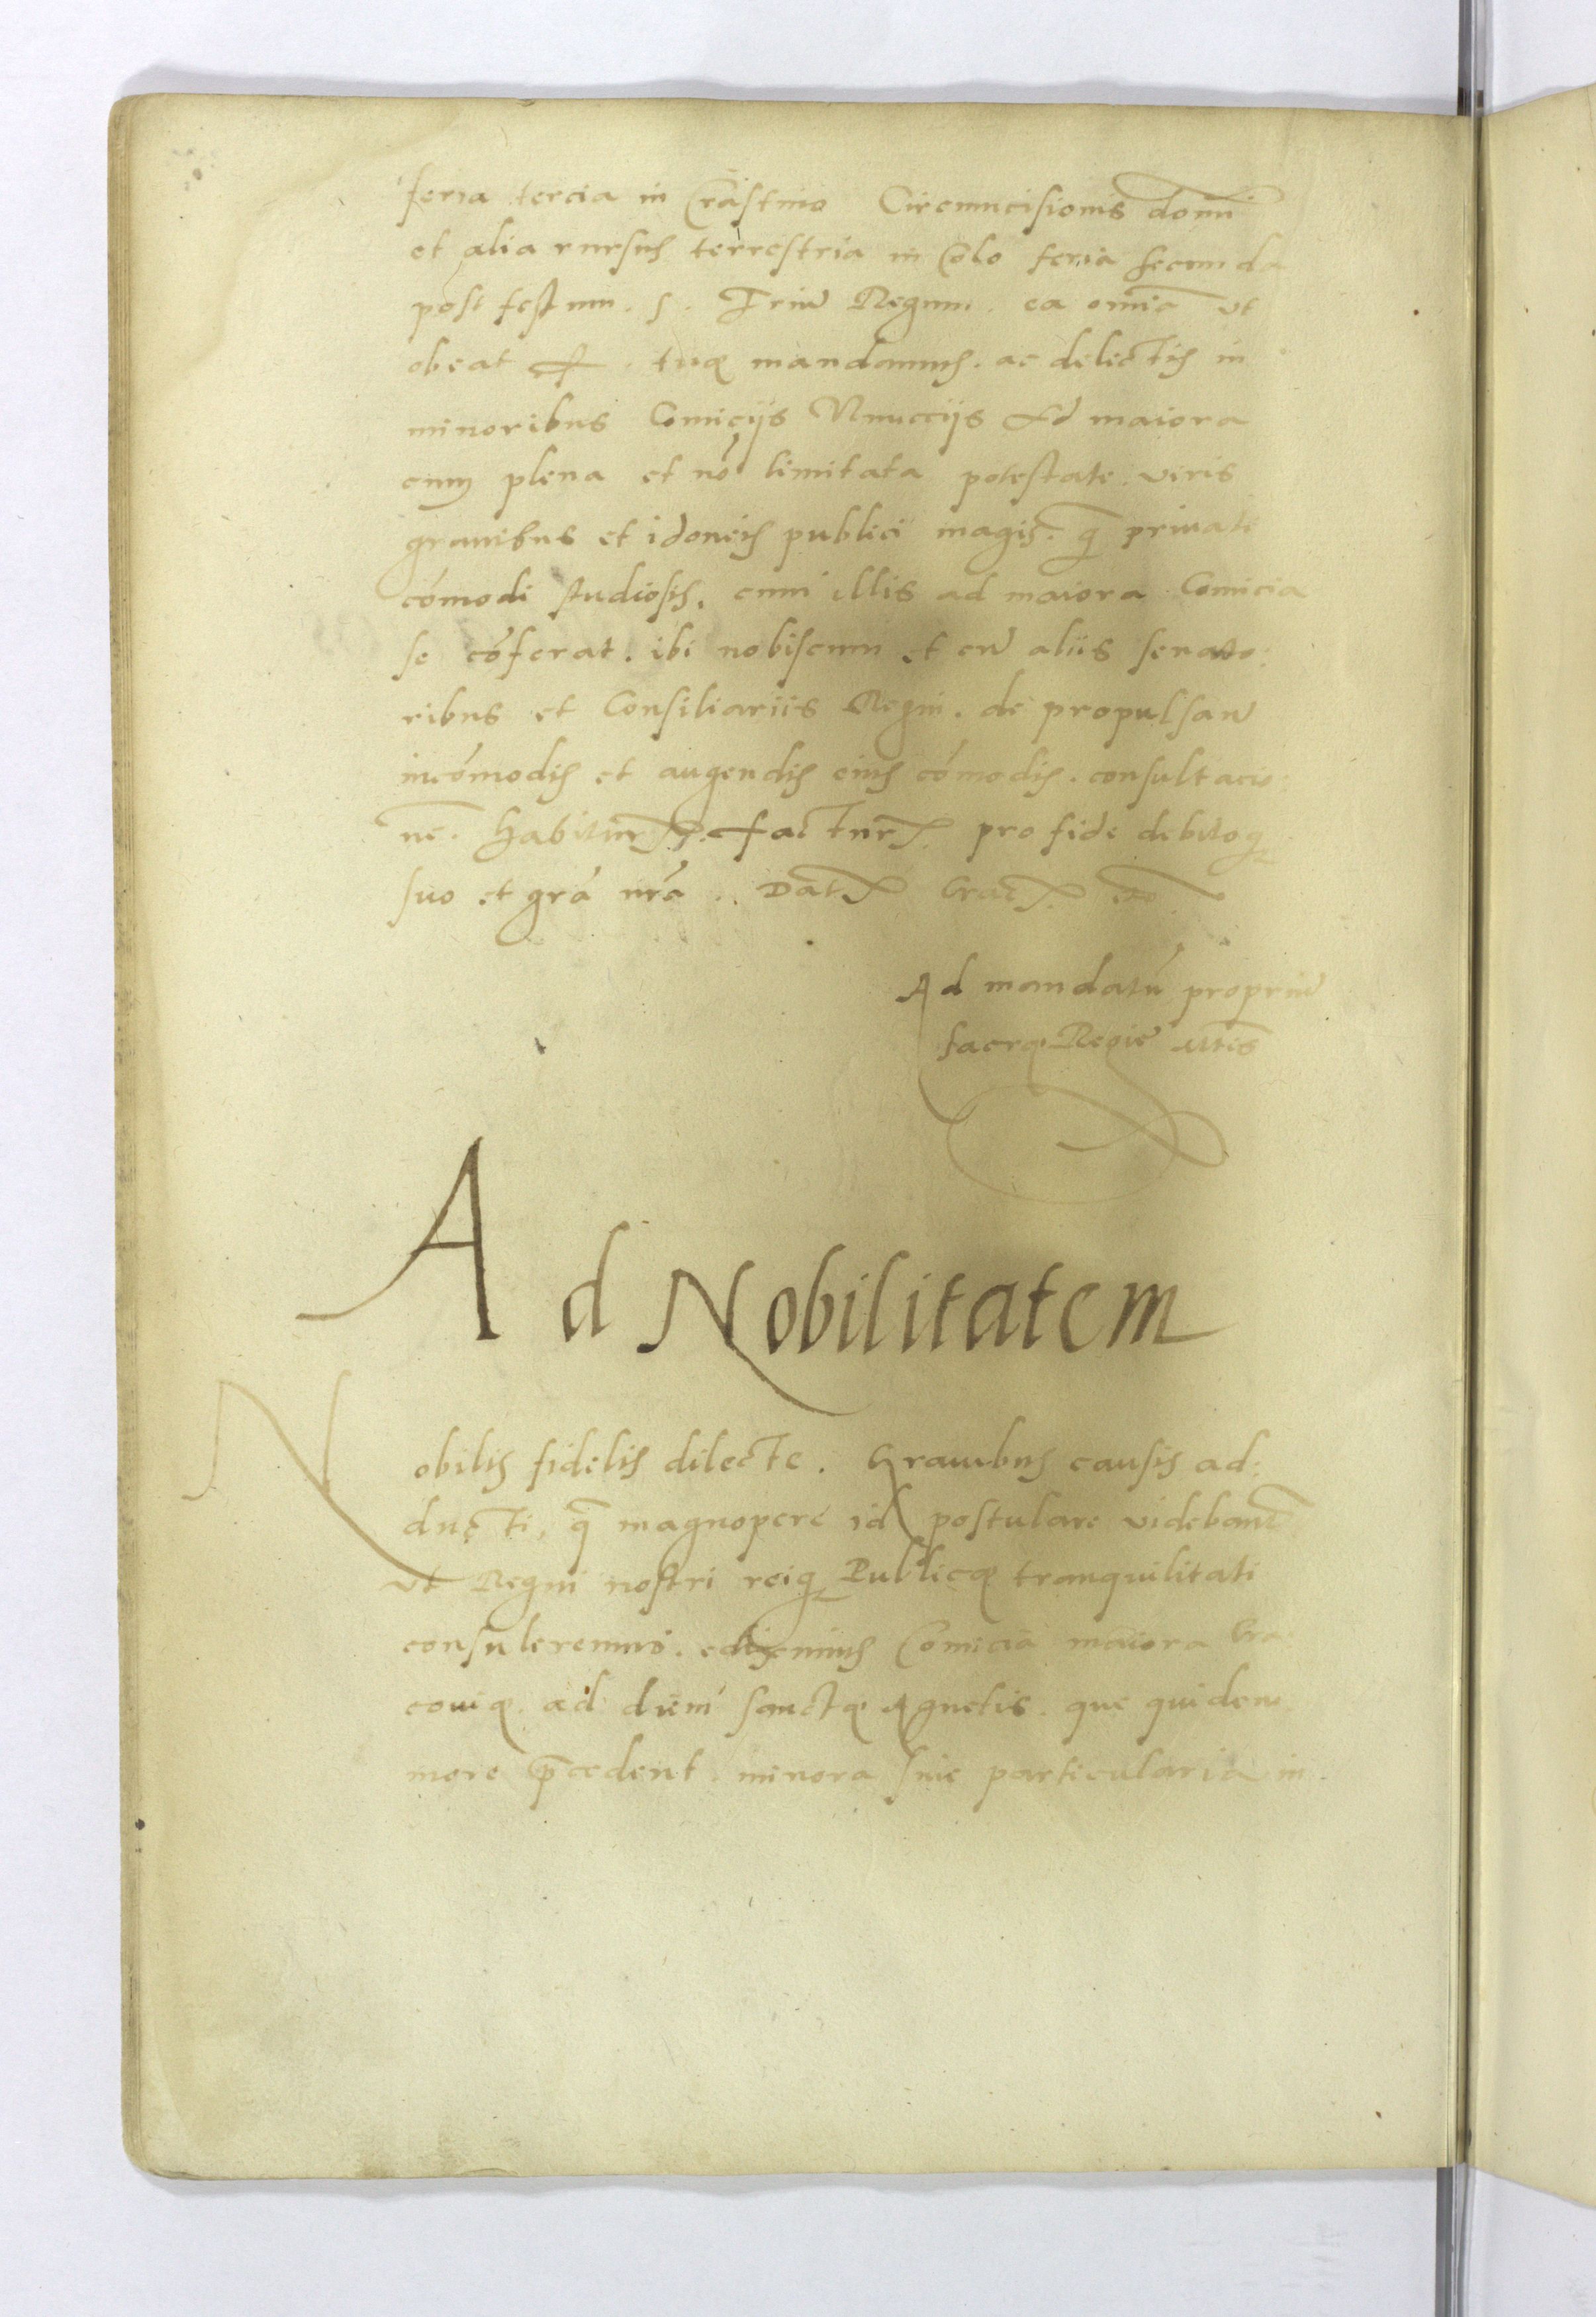 feria tercia in Crastino Circumcisionis domī
et alia rursus terrestria in Colo feria secunda
post festum . S . Triū Regum . ea omīa ut
obeat tuę mandamus . ac delectis in
minoribus Comicijs Nuncijs Ad maiora
cum plena et nō limitata potestate . viris
grauibus et idoneis publici magis . q̄ priuati
cōmodi studiosis . cum illis ad maiora Comicia
se cōferat . ibi nobiscum et cū aliis senato:
ribus et Consiliariis Regni . de propulsan̄
incōmodis et augendis eius cōmodis . consultacio:
nē . habitur . factur . pro fide debitoq
suo et grā nrā . . Dat Crac . etc
Ad mandatū propriū
sacrę Regie Mtis
Ad Nobilitatem
Nobilis fidelis dilecte . Grauibus causis ad:
ducti , q̄ magnopere id postulare videbant̄
ut Regni nostri reiq Publicę tranquilitati
consuleremus . ediximus Comicia maiora Cra
couię . ad diem sanctę Agnetis . que quidem
more p̄cedent . minora siue particularia in